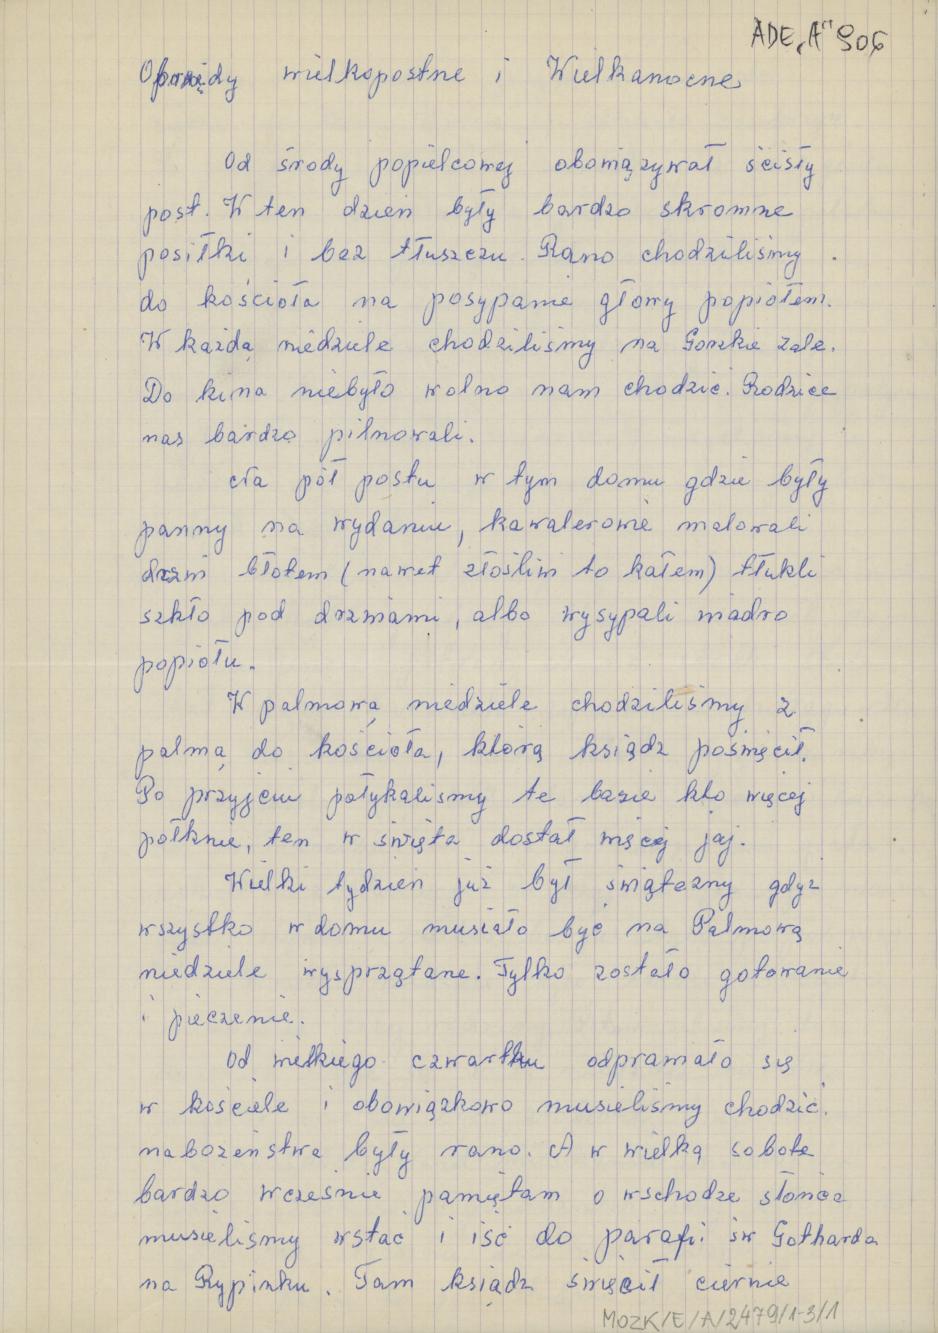 ADE „A" 906
Obrzędy wielkopostne i Wielkanocne
Od środy popielcowej obowiązywał ścisły
post. W ten dzień były bardzo skromne
posiłki i bez tłuszczu. Rano chodziliśmy
do kościoła na posypanie głowy popiołem.
W każdą niedziele chodziliśmy na Gorzkie żale.
Do kina niebyło wolno nam chodzić. Rodzice
nas bardzo pilnowali.
Na pół postu w tym domu gdzie były
panny na wydaniu, kawalerowie malowali
drzwi błotem (nawet złośliwi to kałem) tłukli
szkło pod drzwiami, albo wysypali wiadro
popiołu.
W palmową niedziele chodziliśmy z
palmą do kościoła, którą ksiądz poświęcił.
Po przyjściu połykaliśmy te bazie kto więcej
połknie, ten w święta dostał więcej jaj.
Wielki tydzień już był świąteczny gdyż
wszystko w domu musiało być na Palmową
niedziele wysprzątane. Tylko zostało gotowanie
i pieczenie.
Od wielkiego czwartku odprawiało się
w kościele i obowiązkowo musieliśmy chodzić.
nabożeństwa były rano. A w wielką sobote
bardzo wcześnie pamiętam o wschodze słońca
musieliśmy wstać i iść do parafi św Gotharda
na Rypinku. Tam ksiądz święcił ciernie
MOZK/E/A/2479/1-3/1